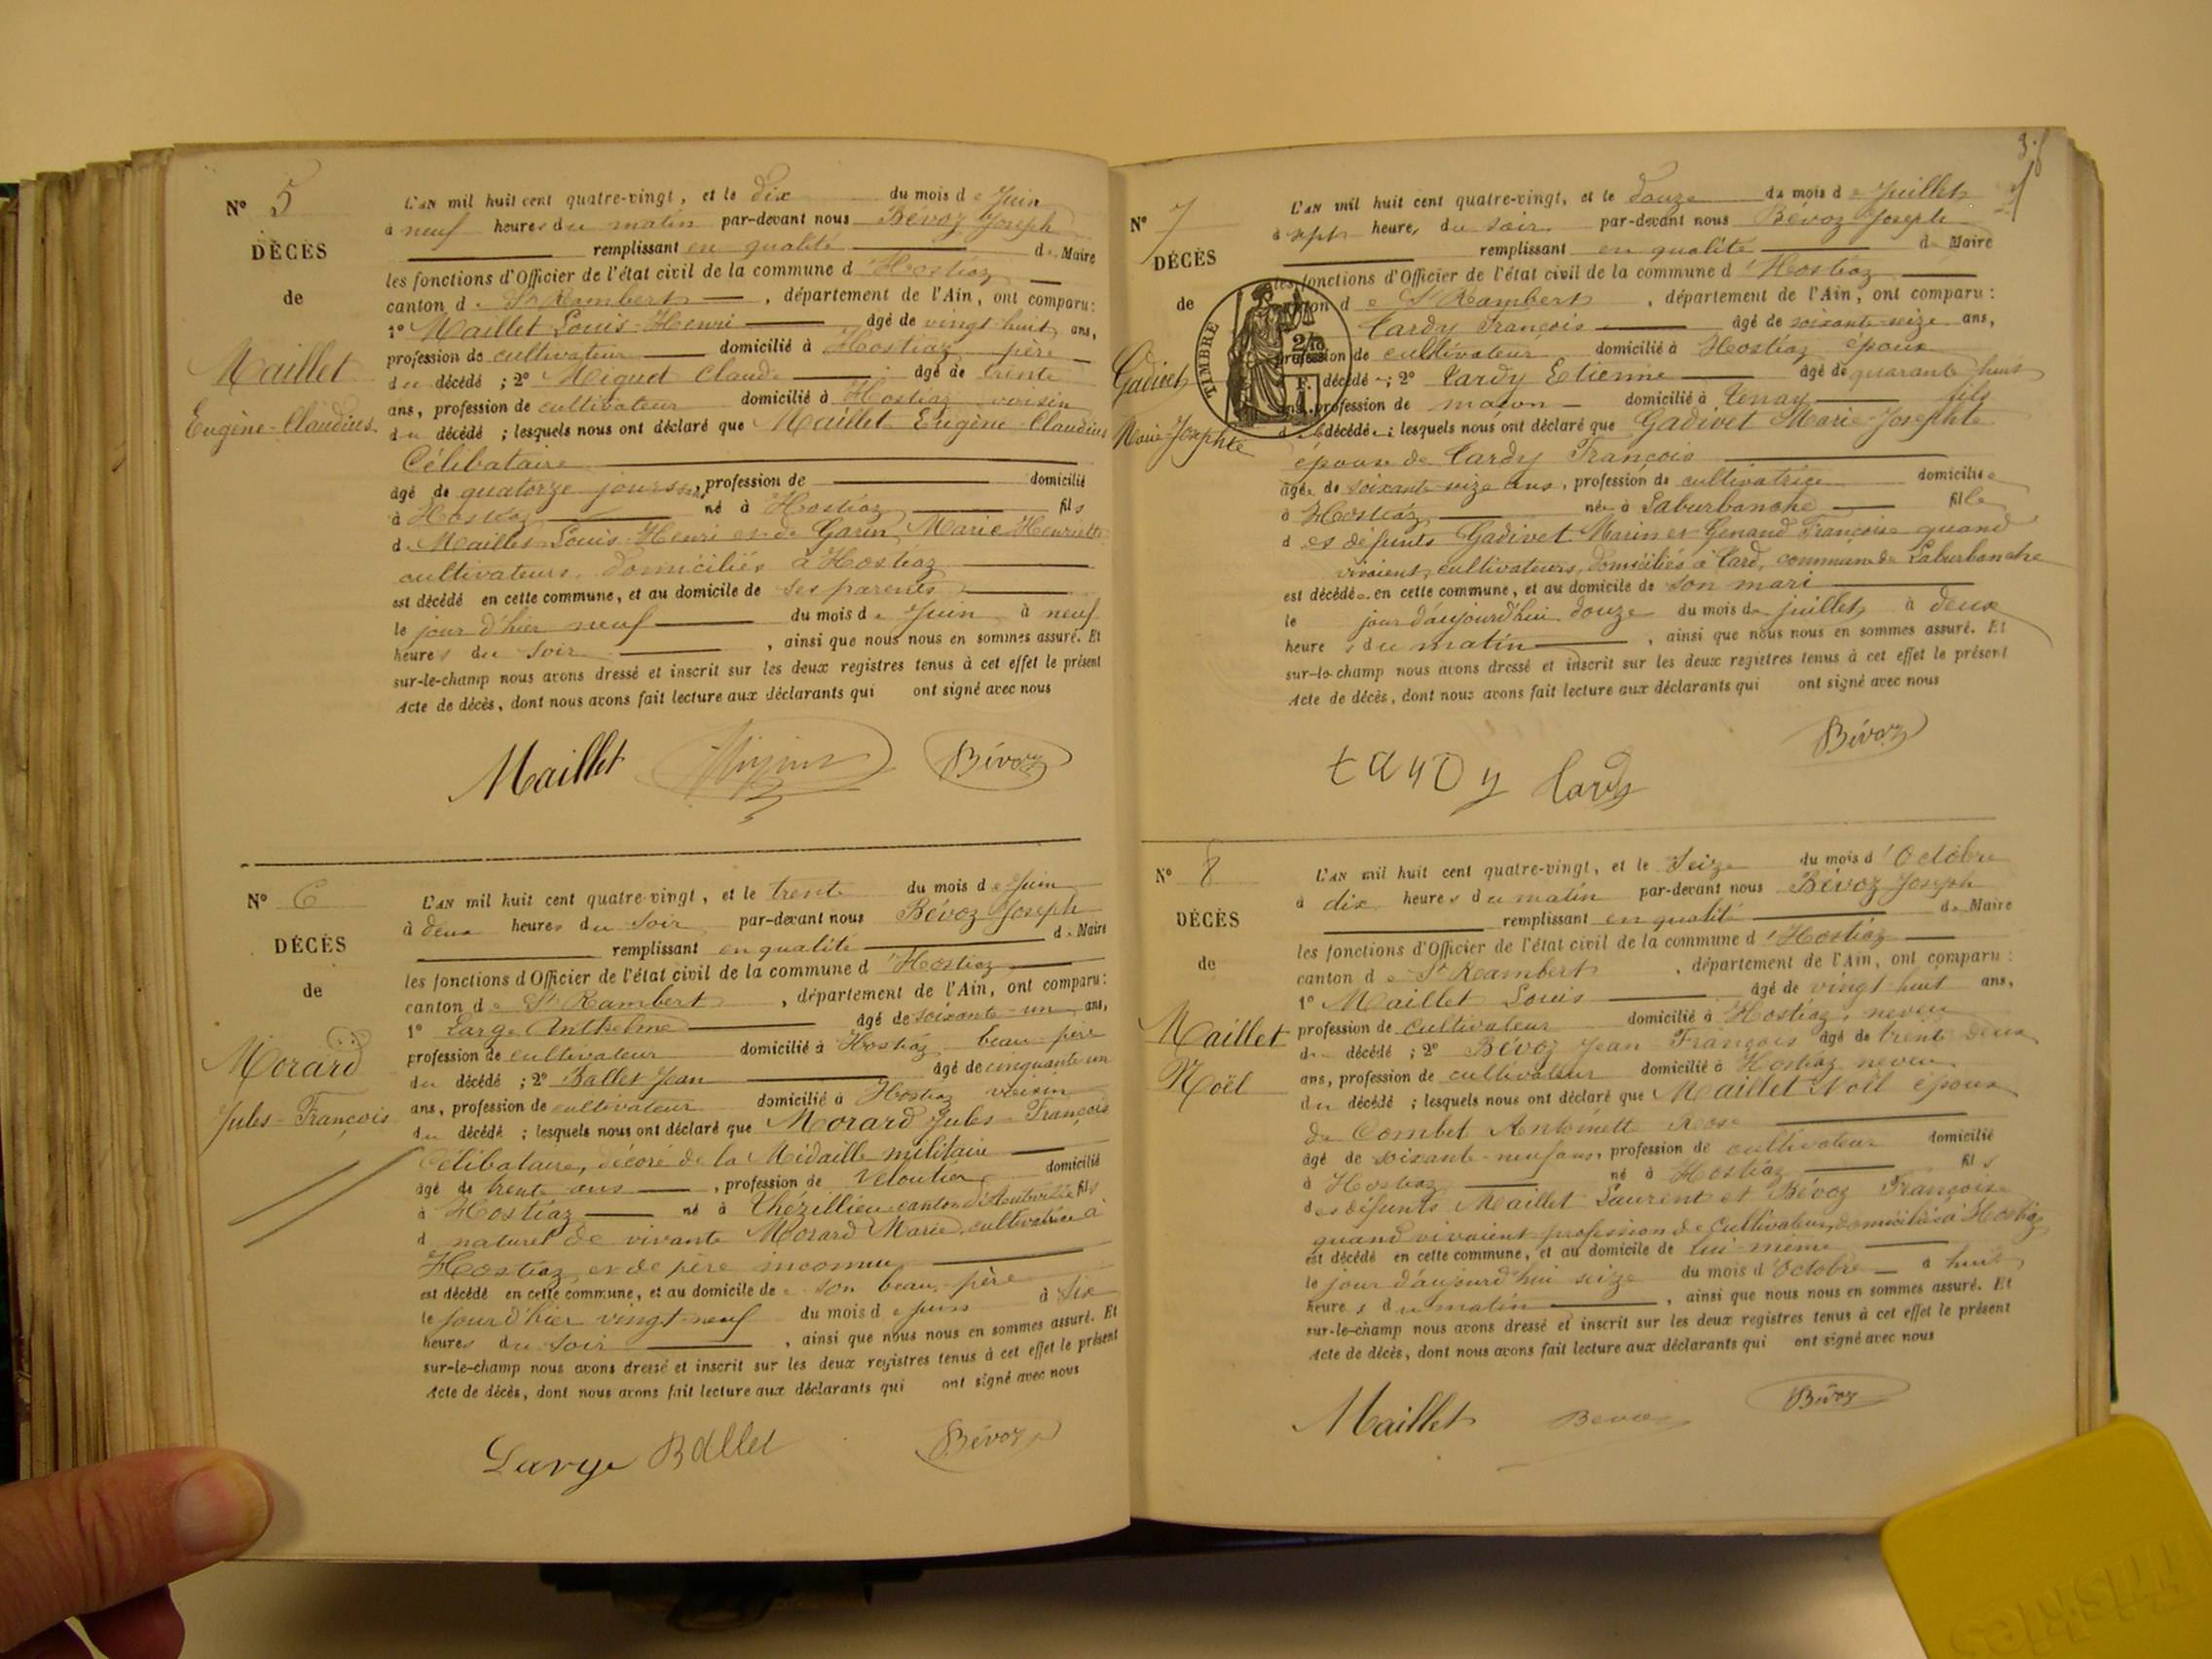 N° 5
DÉCÈS
de
Maillet
Eugène-Claudius
L'AN mil huit cent quatre-vingt, et le dix du mois de Juin
à neuf heures du matin par-devant nous Bévoz Joseph
remplissant en qualité de Maire
les fonctions d'Officier de l'état civil de la commune d'Hostiaz
canton de St Rambert, département de l'Ain, ont comparu :
1° Maillet Louis-Henri âgé de vingt-huit ans,
profession de cultivateur domicilié à Hostiaz père
du décédé ; 2° Miguet Claude âgé de trente
ans, profession de cultivateur domicilié à Hostiaz voisin
du décédé ; lesquels nous ont déclaré que Maillet Eugène-Claudius
Célibataire
âgé de quatorze jours, profession de domicilié
à Hostiaz né à Hostiaz fils
de Maillet Louis-Henri et de Garin Marie Henriette
cultivateurs, domiciliés à Hostiaz
est décédé en cette commune, et au domicile de ses parents
le jour d'hier neuf du mois de Juin à neuf
heures du soir, ainsi que nous nous en sommes assuré. Et
sur-le-champ nous avons dressé et inscrit sur les deux registres tenus à cet effet le présent
Acte de décès, dont nous avons fait lecture aux déclarants qui ont signé avec nous
Maillet Bévoz
N° 6
DÉCÈS
de
Morard
Jules-François
L'AN mil huit cent quatre-vingt, et le trente du mois de Juin
à deux heures du soir par-devant nous Bévoz Joseph
remplissant en qualité de Maire
les fonctions d'Officier de l'état civil de la commune d'Hostiaz
canton de St Rambert, département de l'Ain, ont comparu :
1° Large Anthelme âgé de soixante-un ans,
profession de cultivateur domicilié à Hostiaz beau-père
du décédé ; 2° Ballet Jean âgé de cinquante-un
ans, profession de cultivateur domicilié à Hostiaz voisin
du décédé ; lesquels nous ont déclaré que Morard Jules-François
Célibataire, décoré de la Médaille militaire
âgé de trente ans, profession de Veloutier domicilié
à Hostiaz né à Thézillieu canton d'hauteville fils
d naturel de vivante Morard Marie, cultivatrice à
Hostiaz et de père inconnu
est décédé en cette commune, et au domicile de son beau-père
le jour d'hier vingt-neuf du mois de juin à six
heures du soir, ainsi que nous nous en sommes assuré. Et
sur-le-champ nous avons dressé et inscrit sur les deux registres tenus à cet effet le présent
Acte de décès, dont nous avons fait lecture aux déclarants qui ont signé avec nous
Large Ballet Bévoz
N° 7
DÉCÈS
de
Gadivet
Marie Josephte
TIMBRE
L'AN mil huit cent quatre-vingt, et le douze du mois de Juillet
à sept heures du soir par-devant nous Bévoz Joseph
remplissant en qualité de Maire
les fonctions d'Officier de l'état civil de la commune d'Hostiaz
canton de St Rambert, département de l'Ain, ont comparu :
Tardy François âgé de soixante-seize ans,
profession de cultivateur domicilié à Hostiaz époux
décédé ; 2° Tardy Etienne âgé de quarante huit
ans, profession de maçon domicilié à Tenay fils
décédée ; lesquels nous ont déclaré que Gadivet Marie-Josephte
épouse de Tardy François
âgée de soixante-seize ans, profession de cultivatrice domiciliée
à Hostiaz née à Laburbanche fille
des défunts Gadivet Marin et Genand Françoise quand
vivaient, cultivateurs, domiciliés à Tard, commune de Laburbanche
est décédée en cette commune, et au domicile de son mari
le jour d'aujourd'hui douze du mois de juillet à deux
heures du matin, ainsi que nous nous en sommes assuré. Et
sur-le-champ nous avons dressé et inscrit sur les deux registres tenus à cet effet le présent
Acte de décès, dont nous avons fait lecture aux déclarants qui ont signé avec nous
Bévoz
tardy Tardy
N° 8
DÉCÈS
de
Maillet
Noël
L'AN mil huit cent quatre-vingt, et le Seize du mois d'Octobre
à dix heures du matin par-devant nous Bévoz Joseph
remplissant en qualité de Maire
les fonctions d'Officier de l'état civil de la commune d'Hostiaz
canton de St Rambert, département de l'Ain, ont comparu :
1° Maillet Louis âgé de vingt-huit ans,
profession de cultivateur domicilié à Hostiaz, neveu
du décédé ; 2° Bévoz Jean-François âgé de trente deux
ans, profession de cultivateur domicilié à Hostiaz neveu
du décédé ; lesquels nous ont déclaré que Maillet Noël époux
de Combet Antoinette Rose
âgé de soixante-neuf ans, profession de cultivateur domicilié
à Hostiaz né à Hostiaz fils
des défunts Maillet Laurent et Bévoz Françoise
quand vivaient profession de Cultivateurs, domiciliés à Hostiaz
est décédé en cette commune, et au domicile de lui-même
le jour d'aujourd'hui seize du mois d'Octobre à huit
heures du matin, ainsi que nous nous en sommes assuré. Et
sur-le-champ nous avons dressé et inscrit sur les deux registres tenus à cet effet le présent
Acte de décès, dont nous avons fait lecture aux déclarants qui ont signé avec nous
Maillet Bevoz Bévoz